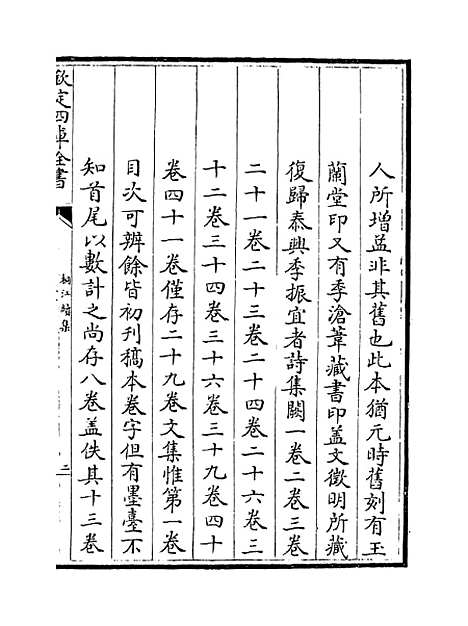 人所增益非其舊也此本猶元時舊刻有玉
蘭堂印又有季滄葦藏書印蓋文徵明所藏
復歸泰興季振宜者詩集闕一卷二卷三卷
二十一卷二十三卷二十四卷二十六卷三
十二卷三十四卷三十六卷三十九卷四十
卷四十一卷僅存二十九卷文集惟第一卷
目次可辨餘皆初刊稿本卷字但有墨臺不
知首尾以數計之尚存八卷盖佚其十三卷
欽定四庫全書
桐江續集
二